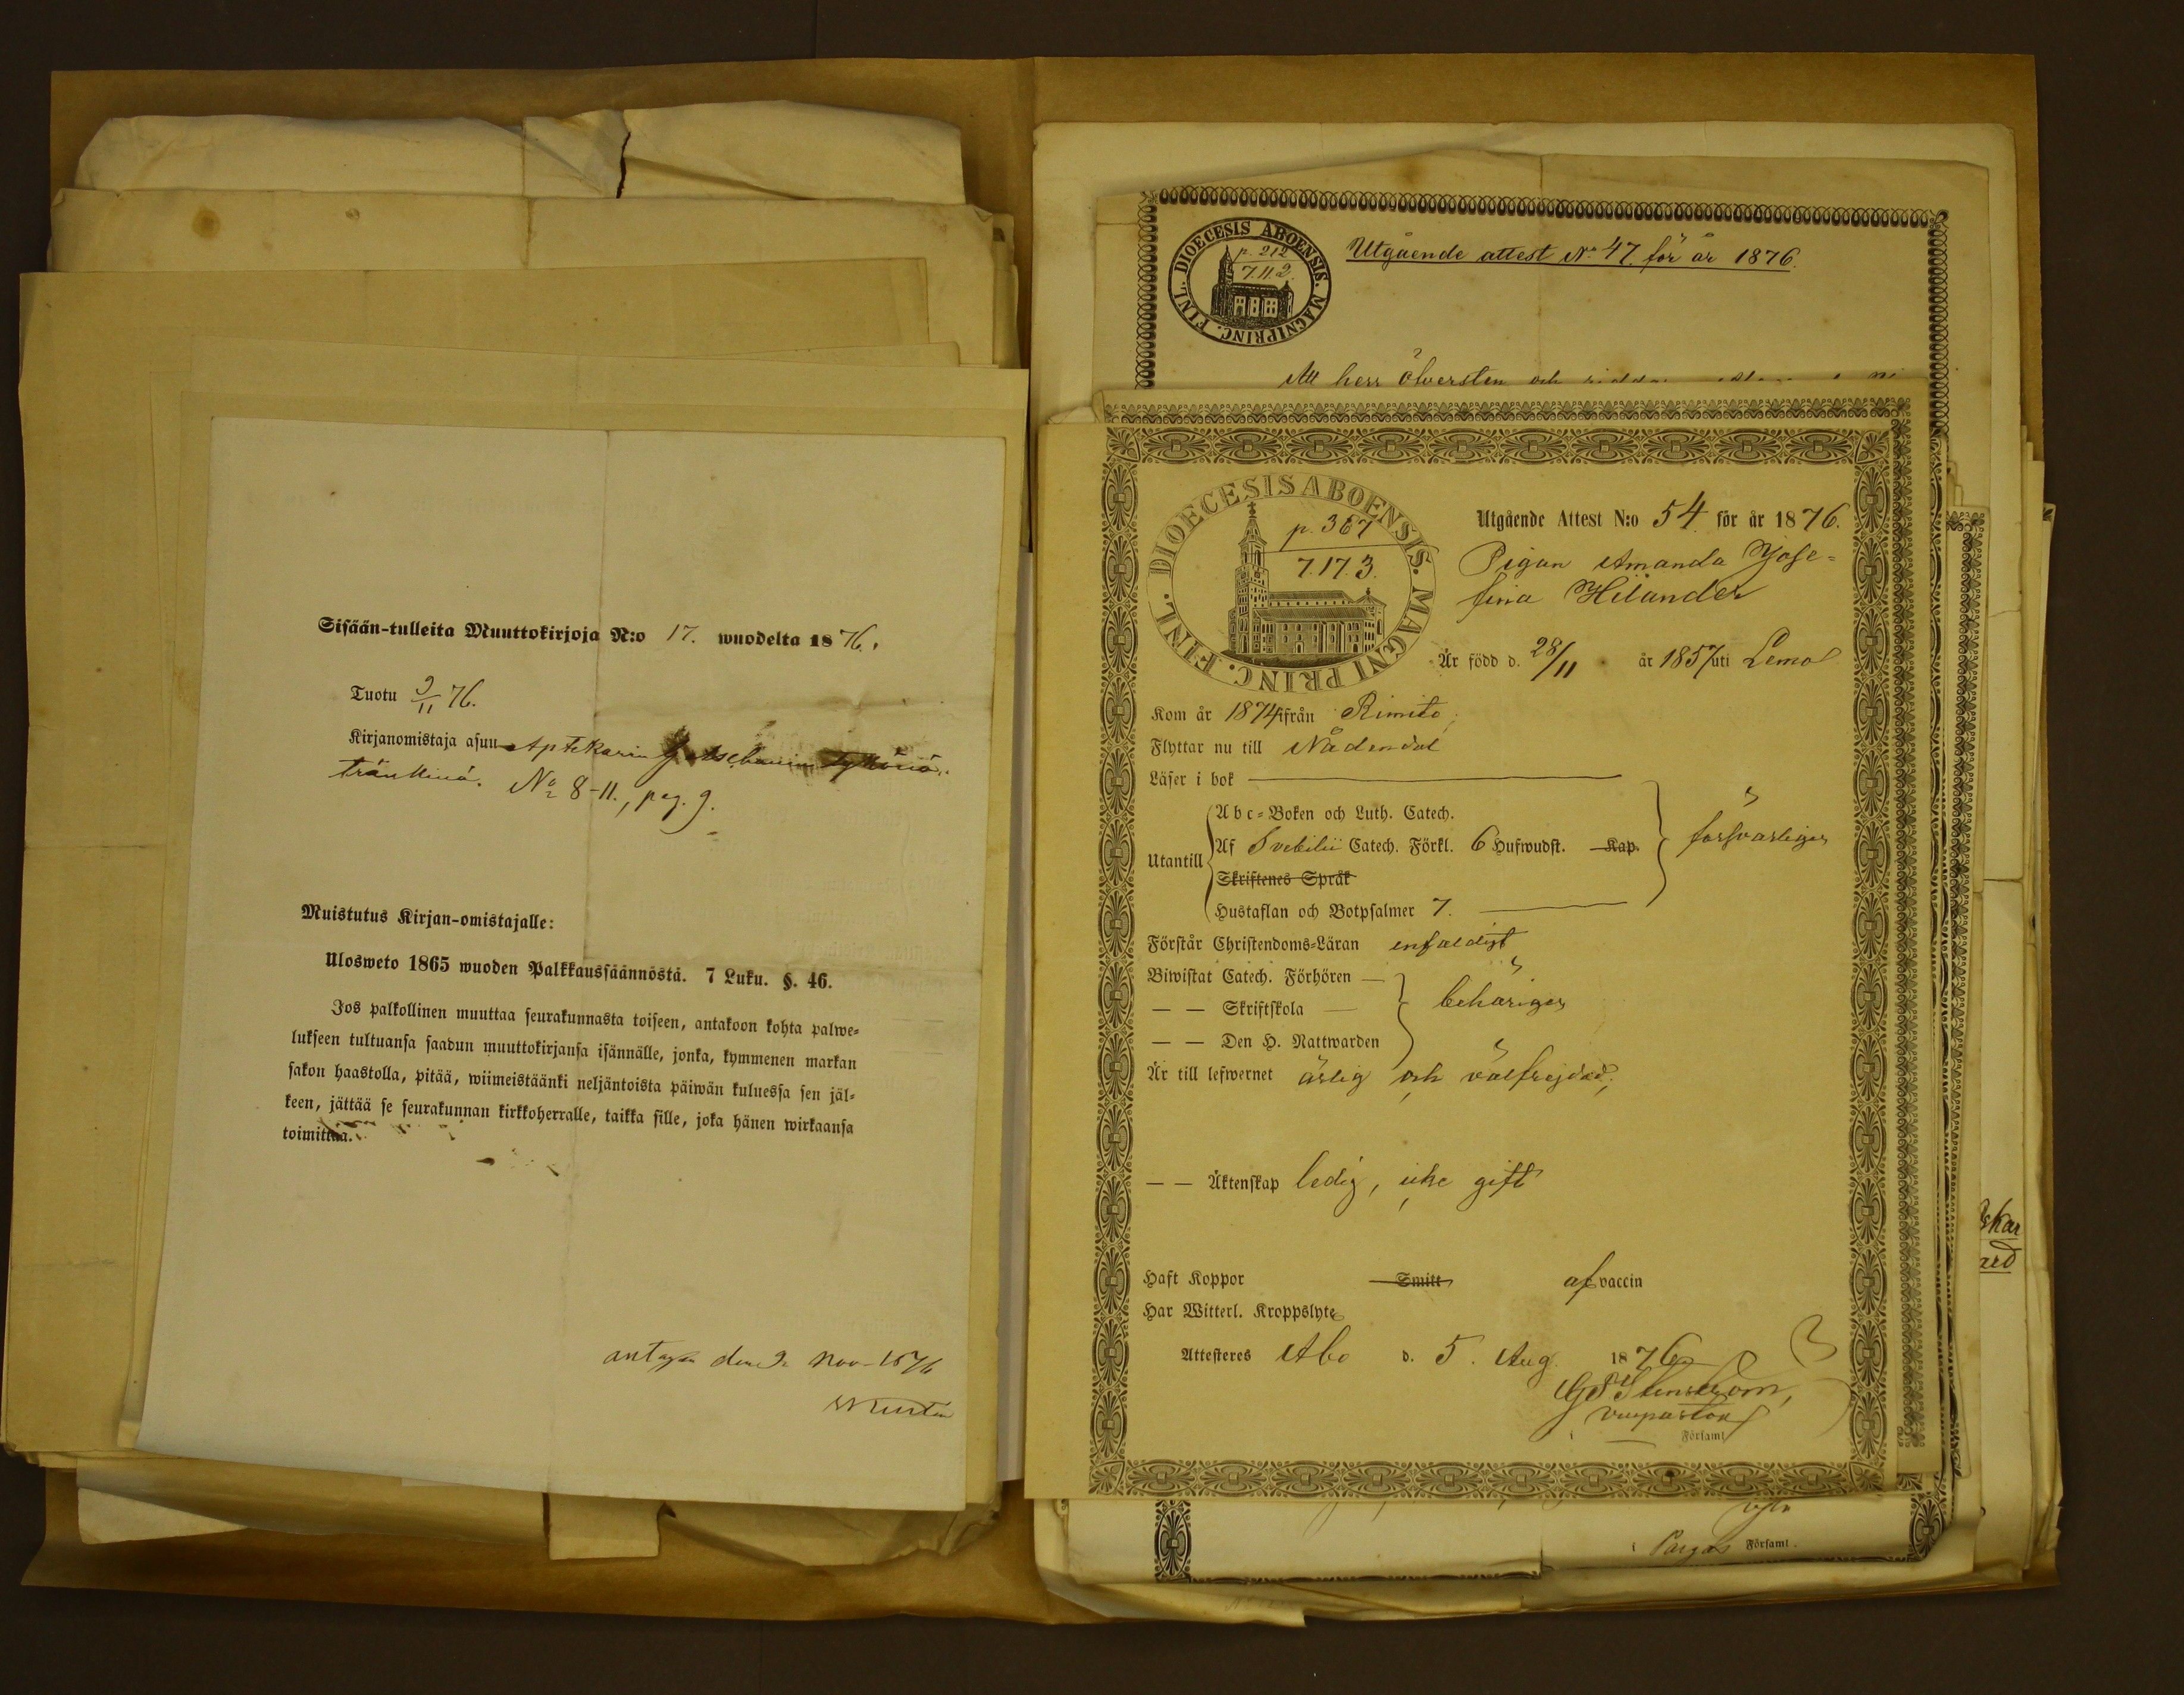 Sisään-tulleita Muuttokirjoja N:o 17. wuodelta 1876.
Tuotu 9/11 76.
Kirjanomistaja asuu Aptekarin
N:o 8-11., pag. 9.
Muistutus Kirjan-omistajalle:
Ulosweto 1865 wuoden Palkkaussäännöstä. 7 Luku. §. 46.
Jos palkollinen muuttaa seurakunnasta toiseen, antakoon kohta palwe-
lukseen tultuansa saadun muuttokirjansa isännälle, jonka, kymmenen markan
sakon haastolla, pitää, wiimeistäänki neljäntoista päiwän kuluessa sen jäl-
keen, jättää se seurakunnan kirkkoherralle, taikka sille, joka hänen wirkaansa
toimittaa.
den 9 Nov 1876
DIOECESIS ABOENSIS. MAGNIPRINC. FINL.
p. 212
7.11.2.
Utgående attest No 47. för år 1876.
Att herr Öfversten och
DIOECESIS ABOENSIS. MAGNI PRINC. FINL.
p. 367
7.17.3.
Utgående Attest N:o 54 för år 1876.
Pigan Amanda Jose-
fina Hilander
Är född d. 28/11 år 1857 uti Lemo
Kom år 1874 ifrån Rimito,
Flyttar nu till Nådendal
Läser i bok
Abc-Boken och Luth. Catech.
Utantill
Af Svebilii Catech. Förkl. 6 Hufwudst. Kap.
försvarligen
Skriftenes Språk
Hustaflan och Botpsalmer 7.
Förstår Christendoms-Läran enfaldigt
Biwistat Catech. Förhören —
— — Skriftskola —
behörigen
— — Den H. Nattwarden
Är till lefwernet ärlig och välfrejdad;
— — Äktenskap ledig, icke gift
Haft Koppor Smitt af vaccin
Har Witterl. Kroppslyte
Attesteres Åbo d. 5. Aug. 1876
Församl
Pargas Församl.
skar
ard